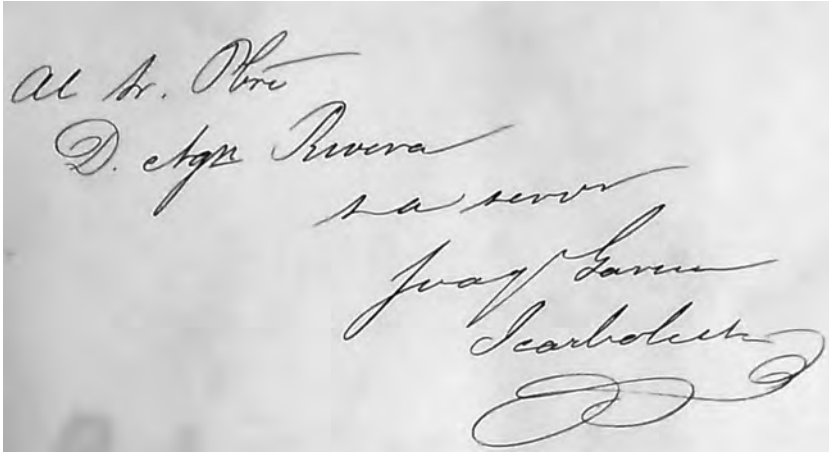 Al Sr. Pbro
D. Agn Rivera
s a servor
Joaqn Garcia
Icazbalceta